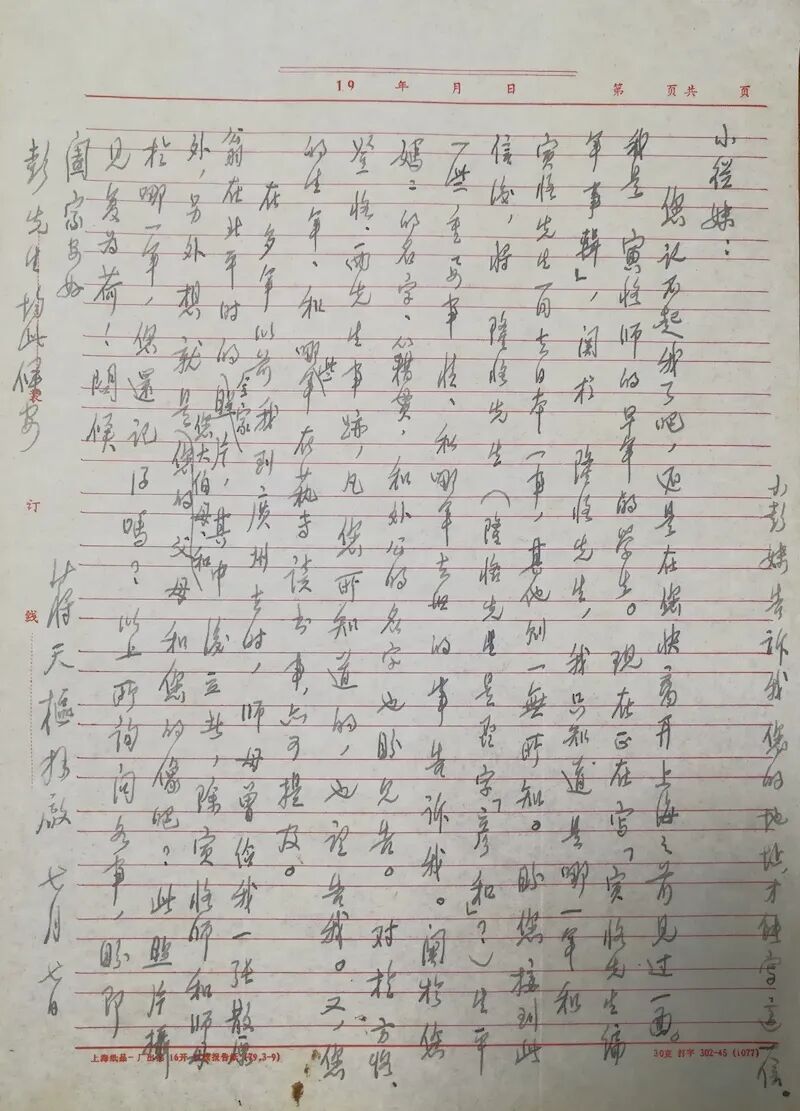 19 年 月 日 第 页共 页
小彭妹告诉我您的地址,才能写这一信。
小從妹:
您记不起我了吧,还是在您快离开上海之前见过一面。
我是 寅恪师的早年的学生。现在正在写「寅恪先生编
年事辑」,關於 隆恪先生,我只知道是哪一年和
寅恪先生一同去日本一事,其他则一無所知。盼您接到此
信後,將 隆恪先生(隆恪先生是否字「彦和」?)生平
一些重要事情、和哪年去世的事告诉我。關於您
媽媽的名字、籍贯,和外公的名字也盼見告。对於方恪、
登恪、兩先生事跡,凡您所知道的,也望告我。又,您
的生年、和哪些年在 读书事,亦可提及。
在多年以前我到廣州去时,师母曾给我一张散原
翁在北平时的(全家)照片,其中後立者,除寅恪师和师母
外,另外想就是(您大伯母和)您的父母和您的像吧?此照片攝
於哪一年,您還记得嗎?以上所詢问各事,盼即
見复为荷!問候
闔家安好
彭先生均此候安
蔣天樞拜啟 七月七日
装
订
线
上海纸品一厂出品 16开 报告纸(79.3-9) 30克 打字 302-45 (1077)